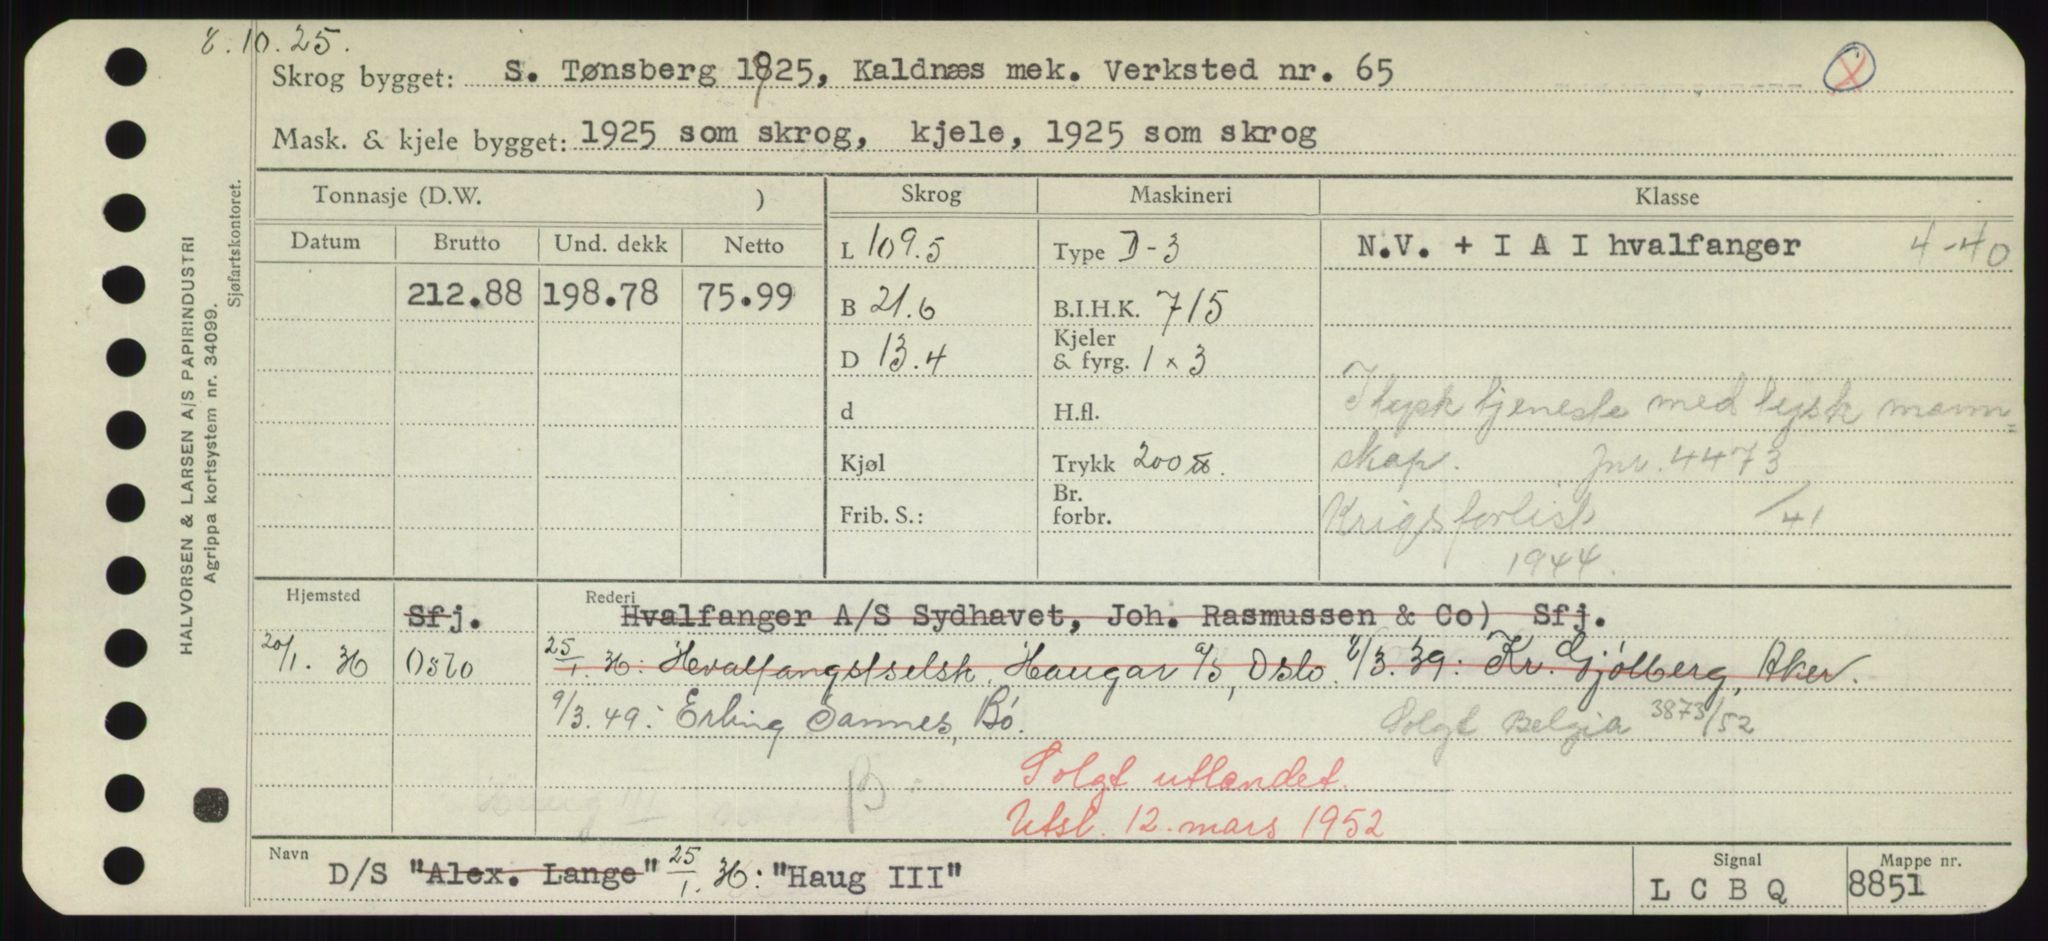 8.10.25.
Skrog bygget: S. Tønsberg 1925, Kaldnæs mek. Verksted nr. 65 X
Mask. & kjele bygget: 1925 som skrog, kjele, 1925 som skrog
Tonnasje (D.W. ) Skrog Maskineri Klasse
Datum Brutto Und. dekk Netto L 109.5 Type D-3 N.V. + I A I hvalfanger 4-40
212.88 198.78 75.99 B 21.6 B.I.H.K. 715
D 13.4 Kjeler & fyrg. 1 x 3
d H.fl. I tysk tjeneste med tysk mann=
Kjøl Trykk 200 skap. jnr. 4473/41
Frib. S.: Br. forbr. Krigsforlist
1944.
Hjemsted Rederi
Sfj. Hvalfanger A/S Sydhavet, Joh. Rasmussen & Co) Sfj.
20/1. 36 Oslo 25/1. 36: Hvalfangstselsk. Haugar A/S, Oslo. 8/3.39: Kr. Gjølberg, Aker.
9/3.49: Erling Sannes, Bø. Solgt Belgia 3873/52
B Solgt utlandet.
Utsl. 12. mars 1952
Navn Signal Mappe nr.
D/S "Alex. Lange" 25/1. 36: "Haug III" L C B Q 8851
HALVORSEN & LARSEN A/S PAPIRINDUSTRI
Agrippa kortsystem nr. 34099.
Sjøfartskontoret.